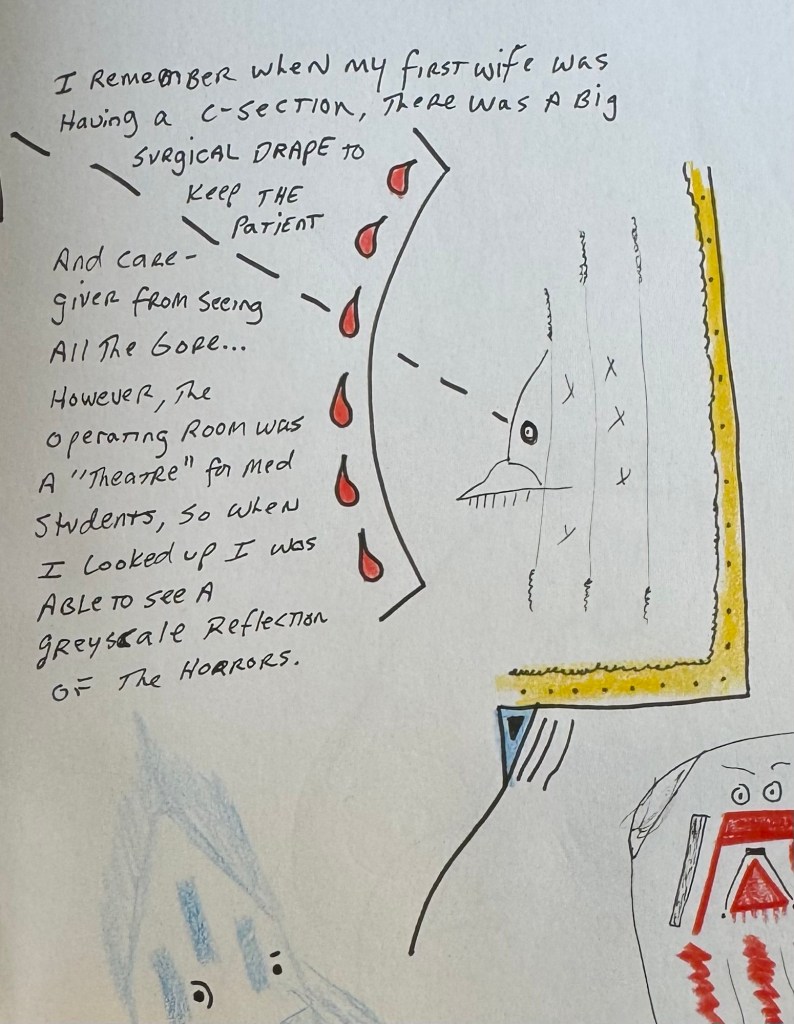 I Remember when my first wife was
Having a C-section, There was a Big
Surgical Drape to
Keep The
Patient
And care-
giver from seeing
All The Gore...
However, The
operating Room was
A "Theatre" for Med
Students, so when
I looked up I was
Able to see A
greyscale Reflection
OF The Horrors.